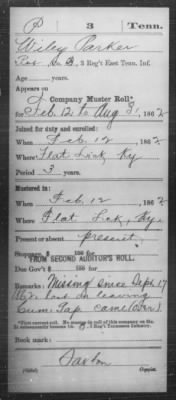 P 3 Tenn.
Wiley Parker
Co. B. 3 Reg't East Tenn. Inf.
Age years.
Appears on
Company Muster Roll*
for Feb 12 to Aug 31, 1862
Joined for duty and enrolled:
When Feb 12, 1862
Where Flat Lick, Ky
Period 3 years.
Mustered in:
When Feb 12, 1862
Where Flat Lick, Ky.
Present or absent present
Stoppage, $ 100 for
FROM SECOND AUDITOR'S ROLL.
Due Gov't $ 100 for
Remarks: Missing since Sept. 17
1862 lost in leaving
Cum. Gap
*This current roll. No muster in roll of this company on file. It
Book mark:
(Copyist)